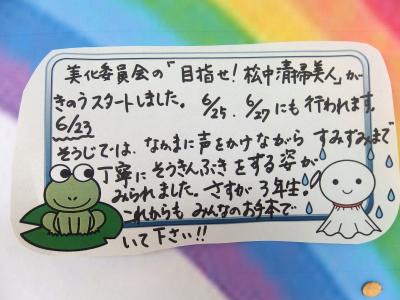 美化委員会の「目指せ！松中清掃美人」が
きのうスタートしました。6/25、6/27にも行われます。
6/23
そうじでは、なかまに声をかけながら すみずみまで
丁寧にぞうきんぶきをする姿が
みられました。さすが3年生。
これからも みんなのお手本で
いて下さい!!